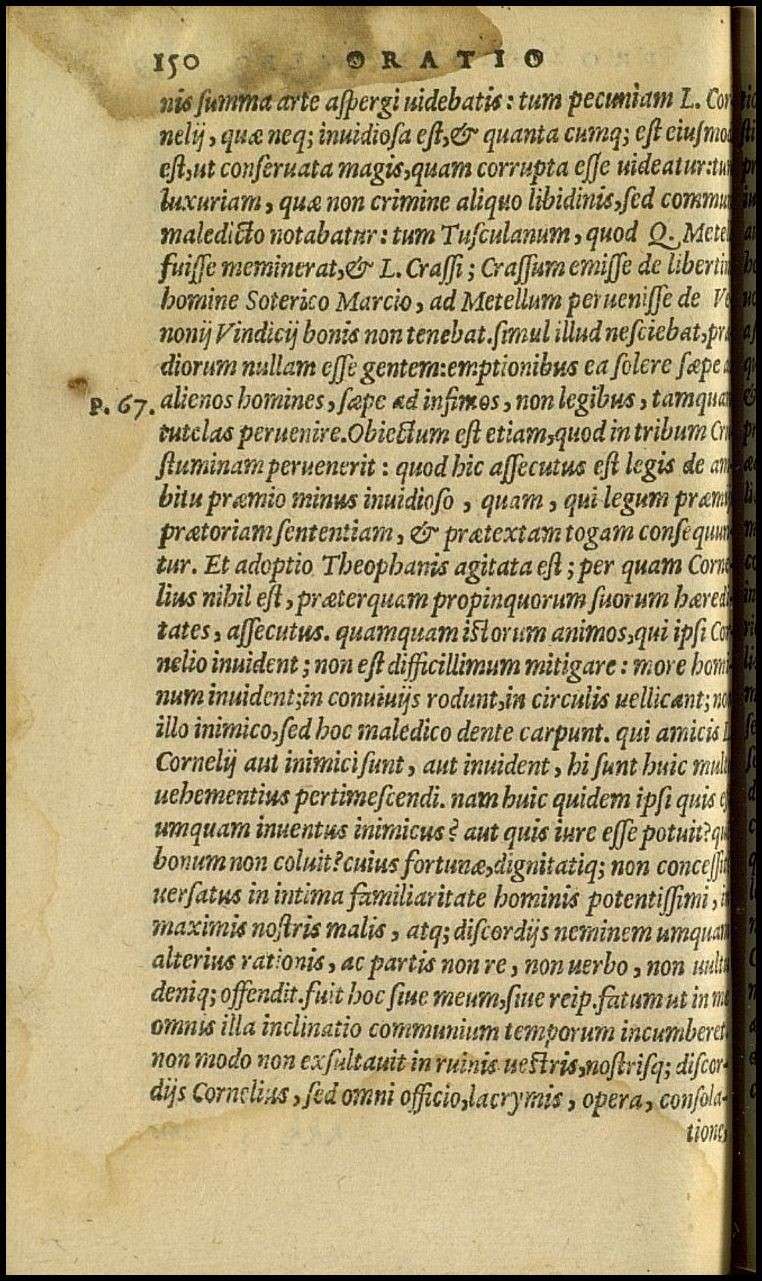 150 ORATIO
nis summa arte aspergi uidebatis: tum pecuniam L. Cor
nelij, quæ neq; inuidiosa est, & quanta cumq; est eiusmod
est, ut conseruata magis, quam corrupta esse uideatur: tum
luxuriam, quæ non crimine aliquo libidinis, sed commun
maledicto notabatur: tum Tusculanum, quod Q. Metel
fuisse meminerat, & L. Crassi; Crassum emisse de libertin
homine Soterico Marcio, ad Metellum peruenisse de Ve
nonij Vindicij bonis non tenebat. simul illud nesciebat, præ
diorum nullam esse gentem: emptionibus ea solere sæpe a
P. 67. alienos homines, sæpe ad infimos, non legibus, tamquam
tutelas peruenire. Obiectum est etiam, quod in tribum Cru
stuminam peruenerit: quod hic assecutus est legis de am
bitu præmio minus inuidioso, quam, qui legum præmijs
prætoriam sententiam, & prætextam togam consequun
tur. Et adoptio Theophanis agitata est; per quam Corne
lius nihil est, præterquam propinquorum suorum hæredi
tates, assecutus. quamquam istorum animos, qui ipsi Cor
nelio inuident; non est difficillimum mitigare: more homi
num inuident; in conuiuijs rodunt, in circulis uellicant; non
illo inimico, sed hoc maledico dente carpunt. qui amicis L
Cornelij aut inimici sunt, aut inuident, hi sunt huic multo
uehementius pertimescendi. nam huic quidem ipsi quis est
umquam inuentus inimicus? aut quis iure esse potuit? quem
bonum non coluit? cuius fortunæ, dignitatiq; non concessit
uersatus in intima familiaritate hominis potentissimi, in
maximis nostris malis, atq; discordijs neminem umquam
alterius rationis, ac partis non re, non uerbo, non uultu
deniq; offendit. fuit hoc siue meum, siue reip. fatum ut in me
omnis illa inclinatio communium temporum incumberet.
non modo non exsultauit in ruinis uestris, nostrisq; discor-
dijs Cornelius, sed omni officio, lacrymis, opera, consola-
tione,